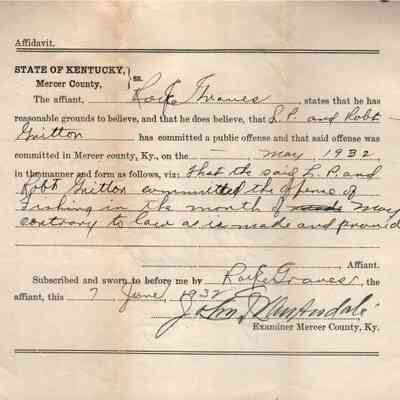 Affidavit.
STATE OF KENTUCKY, } ss.
Mercer County,
The affiant, Graves, states that he has
reasonable grounds to believe, and that he does believe, that L. P. and Robt -
Gritton has committed a public offense and that said offense was
committed in Mercer county, Ky., on the - May, 1932
in the manner and form as follows, viz: That the said L. P. and
Robt Gritton committed the offense of
Fishing in the month of May
contrary to law as is made and provided
, Affiant.
Subscribed and sworn to before me by Graves, the
affiant, this 7 June, 1932
John
Examiner Mercer County, Ky.